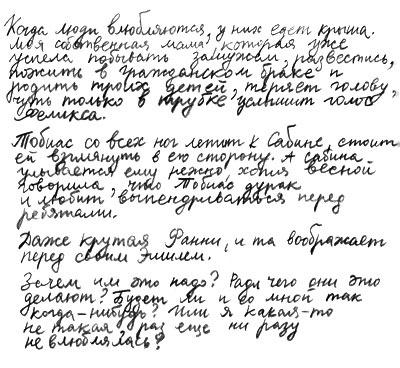 Когда люди влюбляются, у них едет крыша.
Моя собственная мама, которая уже
успела побывать замужем, развестись,
пожить в гражданском браке и
родить троих детей, теряет голову,
чуть только в трубке услышит голос
Феликса.
Тобиас со всех ног летит к Сабине, стоит
ей взглянуть в его сторону. А Сабина
улыбается ему нежно, хотя весной
говорила, что Тобиас дурак
и любит выпендриваться перед
ребятами.
Даже крутая Фанни, и та воображает
перед своим Эмилем.
Зачем им это надо? Ради чего они это
делают? Будет ли и со мной так
когда-нибудь? Или я какая-то
не такая, раз еще ни разу
не влюблялась?